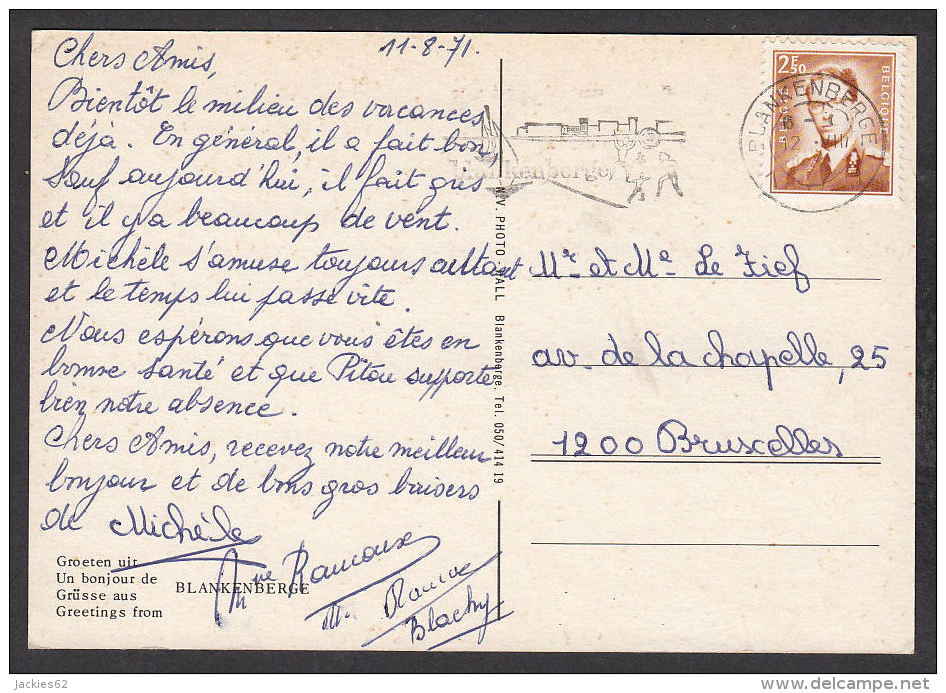 11-8-71.
Chers Amis,
Bientôt le milieu des vacances
déjà. En général, il a fait bon
Sauf aujourd'hui, il fait gris
et il y a beaucoup de vent.
Michèle s'amuse toujours autant
et le temps lui passe vite.
Nous espérons que vous êtes en
bonne santé et que Pitou supporte
bien notre absence.
Chers Amis, recevez notre meilleur
bonjour et de bons gros baisers
de Michèle
Blachy
Groeten uit
Un bonjour de
Grüsse aus
Greetings from
BLANKENBERGE
N.V. PHOTO HALL Blankenberge. Tel. 050/414 19
Blankenberge
BLANKENBERGE
12 VIII
2F50
BELGIE
BELGIQUE
Mr et Me Le Fief
av. de la chapelle, 25
1200 Bruxelles
jackies62
delcampe.net